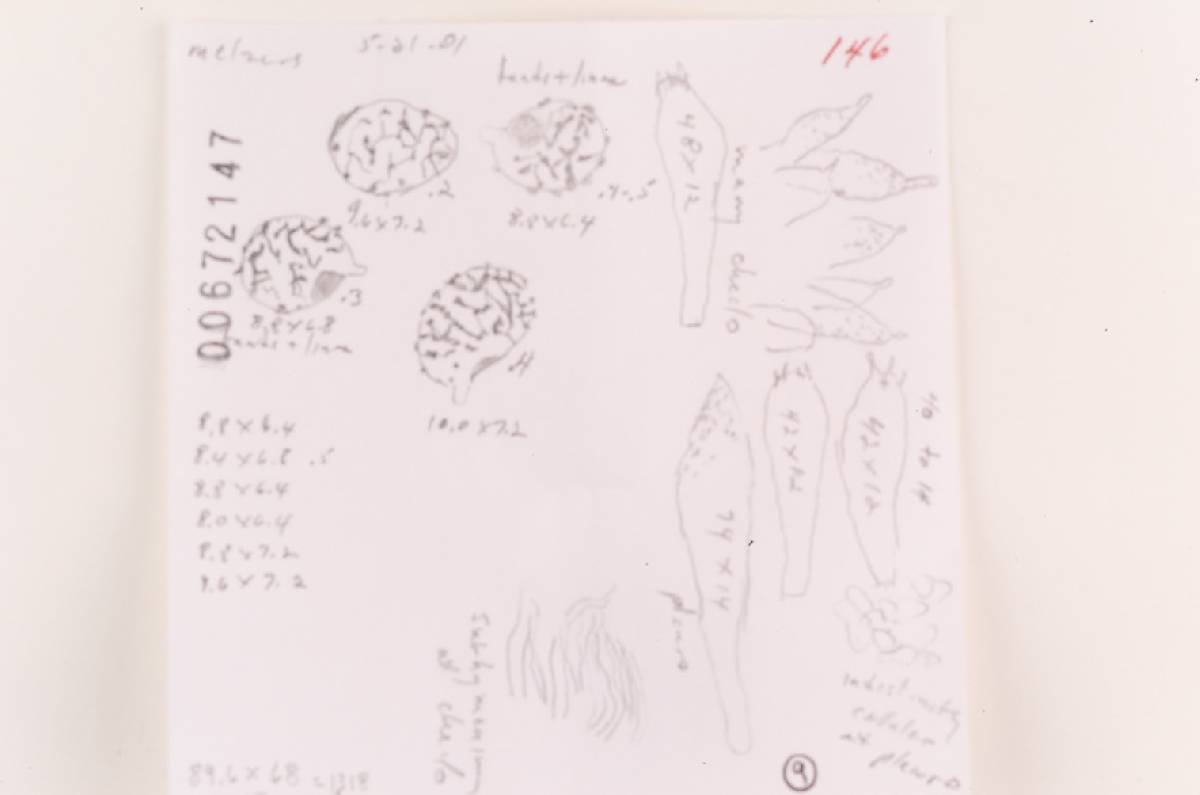 melzers 5-21-01
146
bands + lines
.2
9.6 x 7.2
.4-.5
8.8 x 6.4
48 x 12
many cheilo
00672147
.3
8.8 x 6.8
bands + lines
.4
10.0 x 7.2
8.8 x 6.4
8.4 x 6.8 .5
8.8 x 6.4
8.0 x 6.4
8.8 x 7.2
9.6 x 7.2
42 x 12
42 x 12
to 14
74 x 14
pleuro
subhymenium
at cheilo
indistinctly
cellular
at pleuro
89.6 x 68 = 1318
9